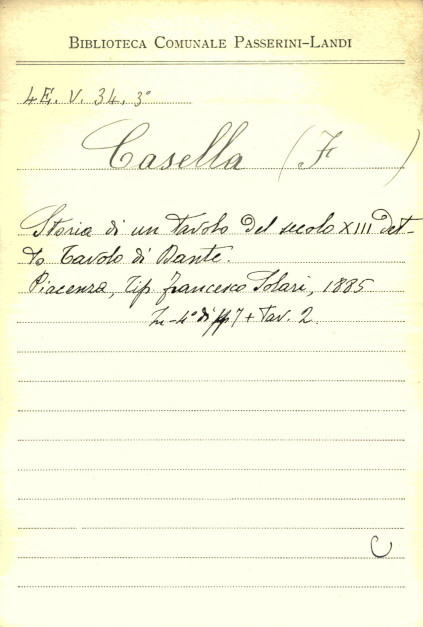 BIBLIOTECA COMUNALE PASSERINI-LANDI
4E. V. 34. 3°
Casella (F )
Storia di un tavolo del secolo XIII det-
to Tavolo di Dante.
Piacenza, Tip. Francesco Solari, 1885
In-4° di pp 7 + tav. 2.
C